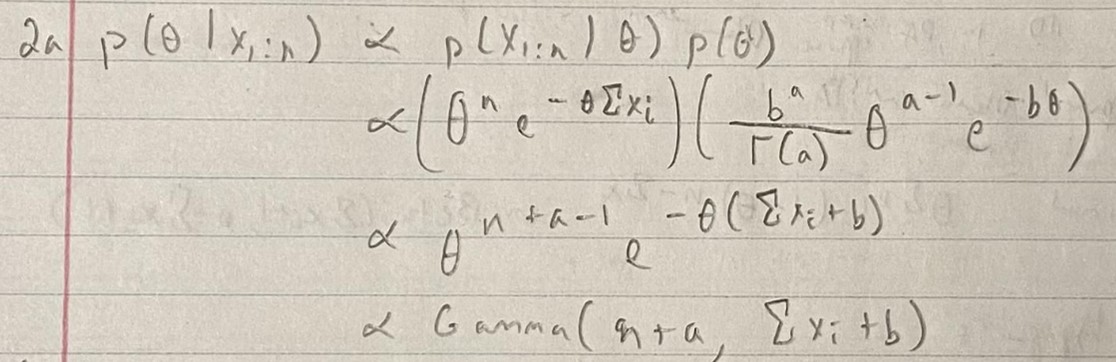 2a p(θ | x₁:ₙ) ∝ p(x₁:ₙ | θ) p(θ)
∝ (θⁿ e^{-θΣxᵢ}) (b^a/Γ(a) θ^{a-1} e^{-bθ})
∝ θ^{n+a-1} e^{-θ(Σxᵢ+b)}
∝ Gamma(n+a, Σxᵢ+b)